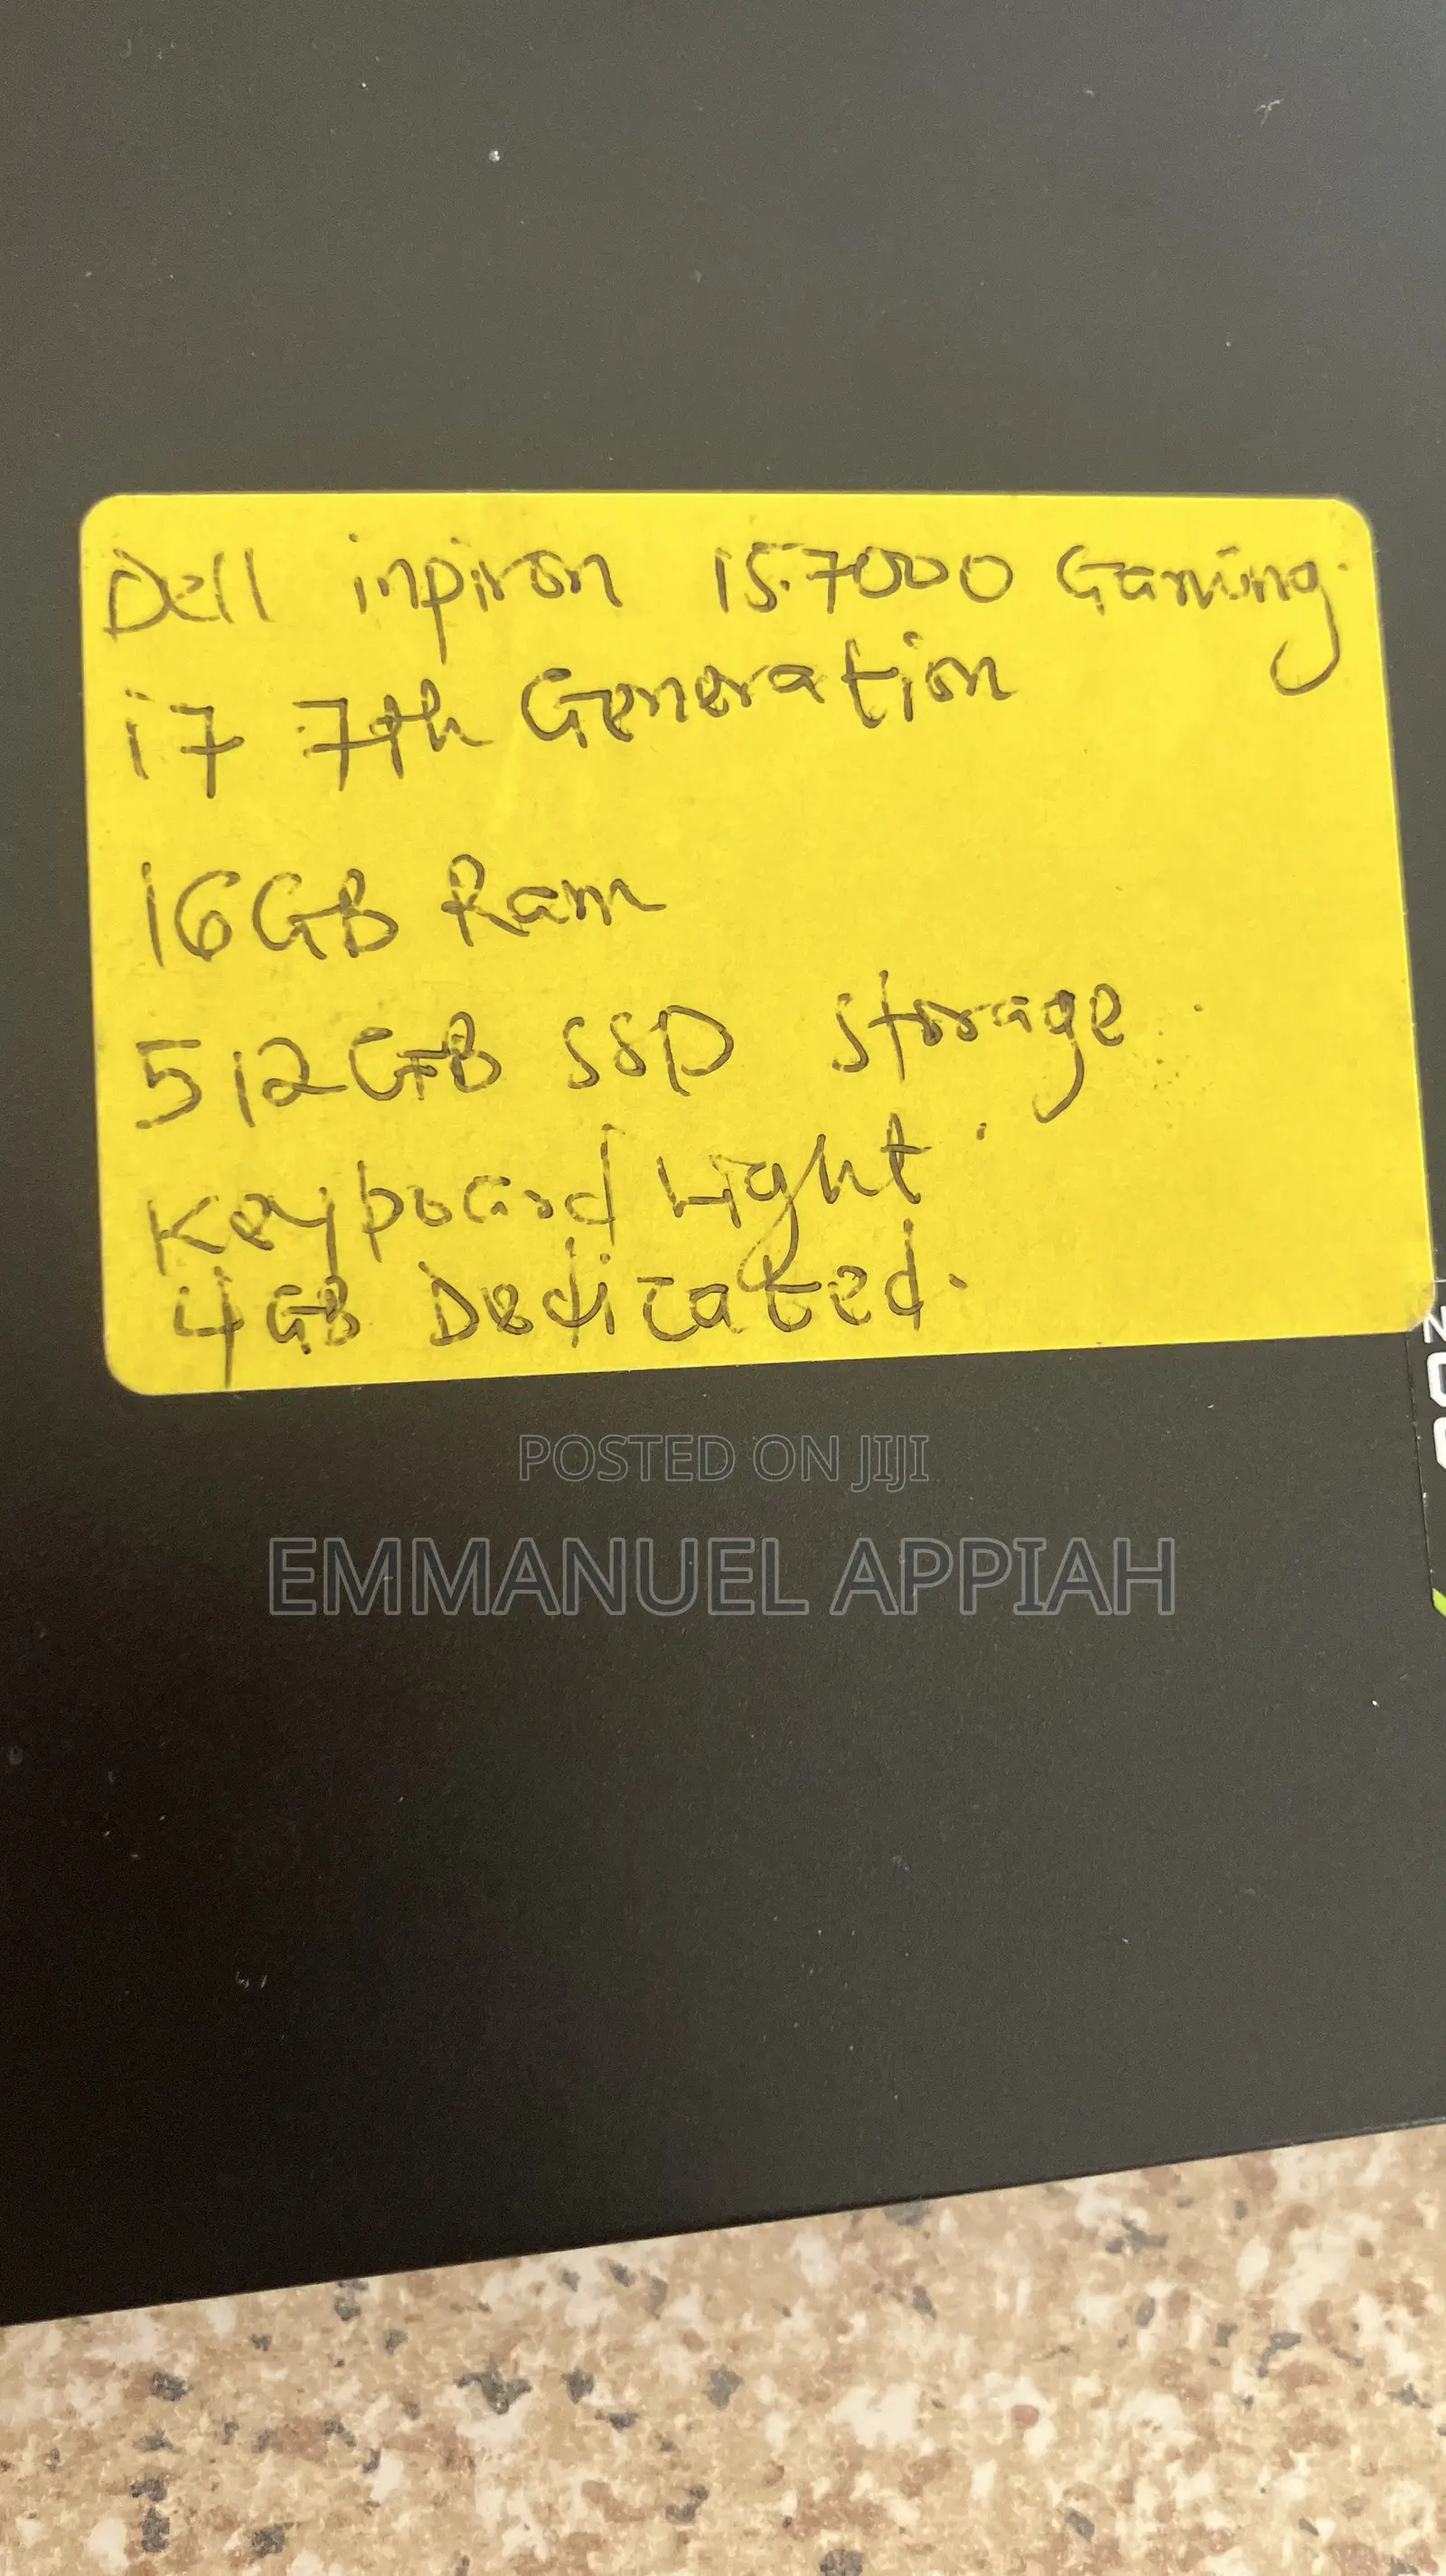 Dell inpiron 15.7000 Gaming.
i7 7th Generation
16GB Ram
512GB SSD Storage
Keyboard Light
4GB Dedicated.
POSTED ON JIJI
EMMANUEL APPIAH